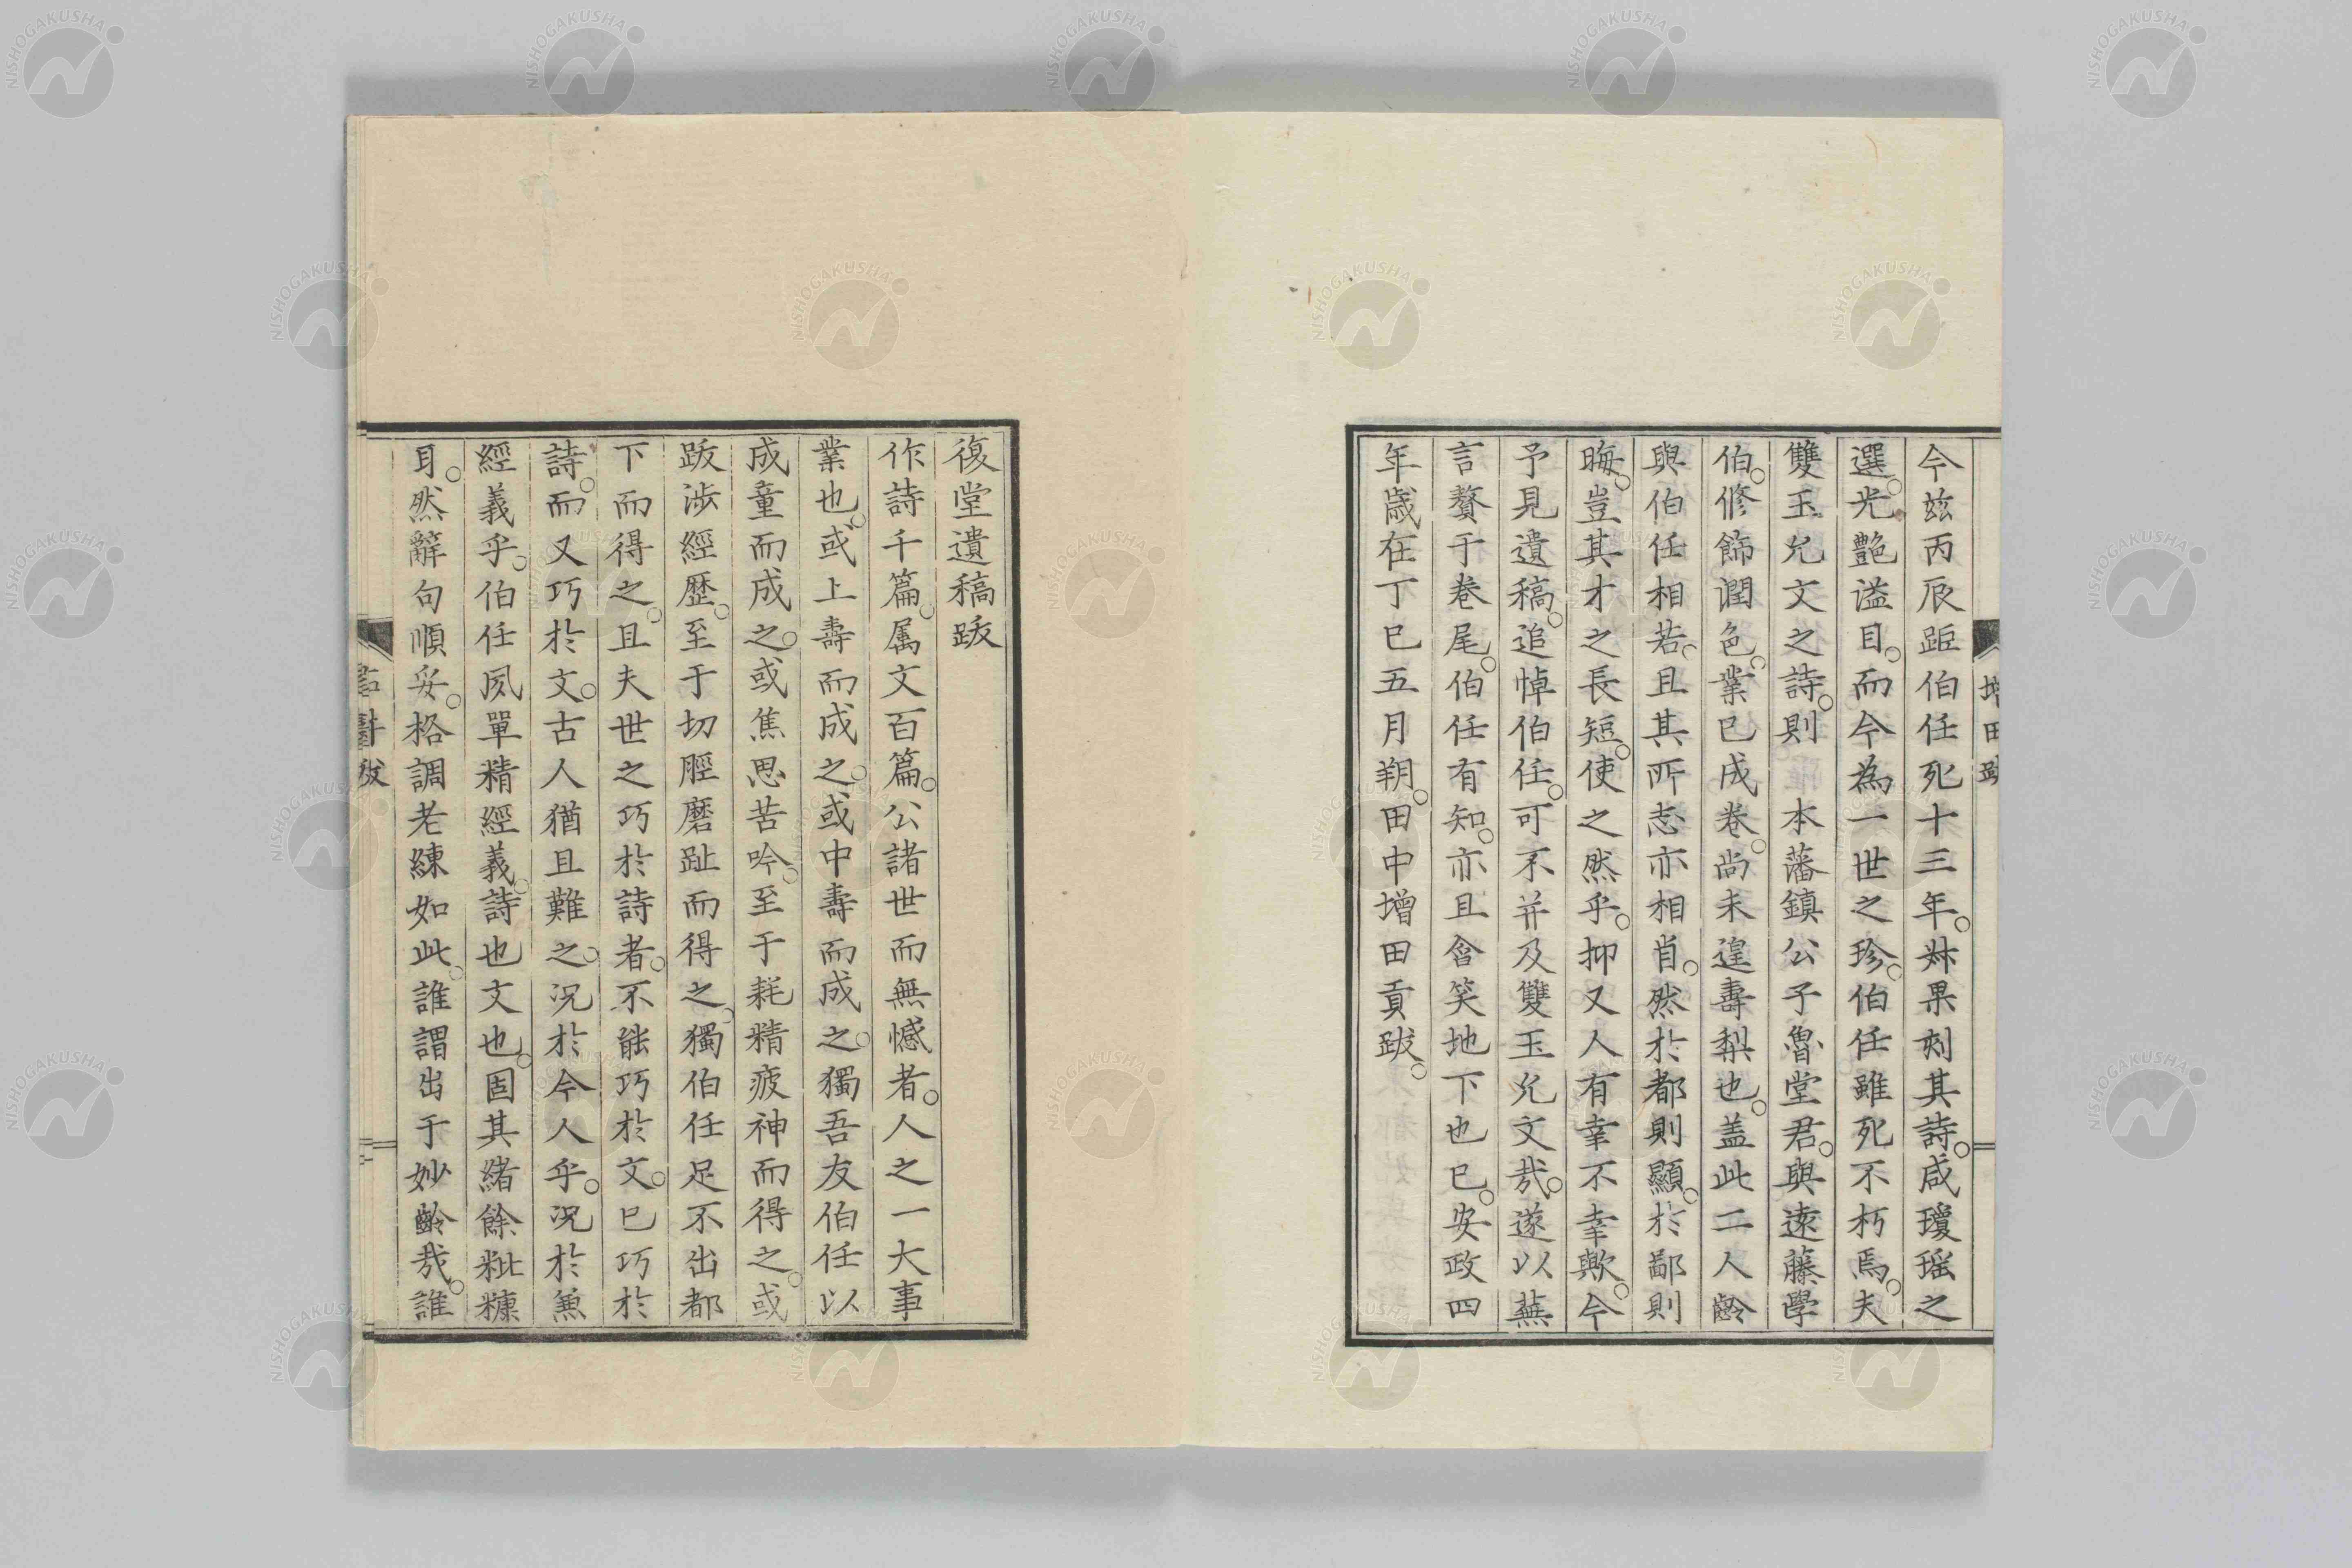 今茲丙辰距伯任死十三年。妹果刻其詩。咸瓊瑶之
選。光艶溢目。而今為一世之珍。伯任雖死不朽焉。夫
雙玉允文之詩。則 本藩鎮公子魯堂君。與遠藤學
伯。修飾潤色。業已成卷。尚未遑壽梨也。盖此二人齡
與伯任相若。且其所志亦相肖。然於都則顯。於鄙則
晦。豈其才之長短。使之然乎。抑又人有幸不幸歟。今
予見遺稿。追悼伯任。可不并及雙玉允文哉。遂以蕪
言贅于卷尾。伯任有知。亦且含笑地下也已。安政四
年歲在丁巳五月朔。田中增田貢跋。
復堂遺稿跋
作詩千篇。属文百篇。公諸世而無憾者。人之一大事
業也。或上壽而成之。或中壽而成之。獨吾友伯任以
成童而成之。或焦思苦吟。至于耗精疲神而得之。或
跋渉經歷。至于切脛磨趾而得之。獨伯任足不出都
下而得之。且夫世之巧於詩者。不能巧於文。已巧於
詩。而又巧於文。古人猶且難之。况於今人乎。况於兼
經義乎。伯任夙單精經義。詩也文也。固其緒餘粃糠
耳。然辭句順妥。格調老練如此。誰謂出于妙齡哉。誰